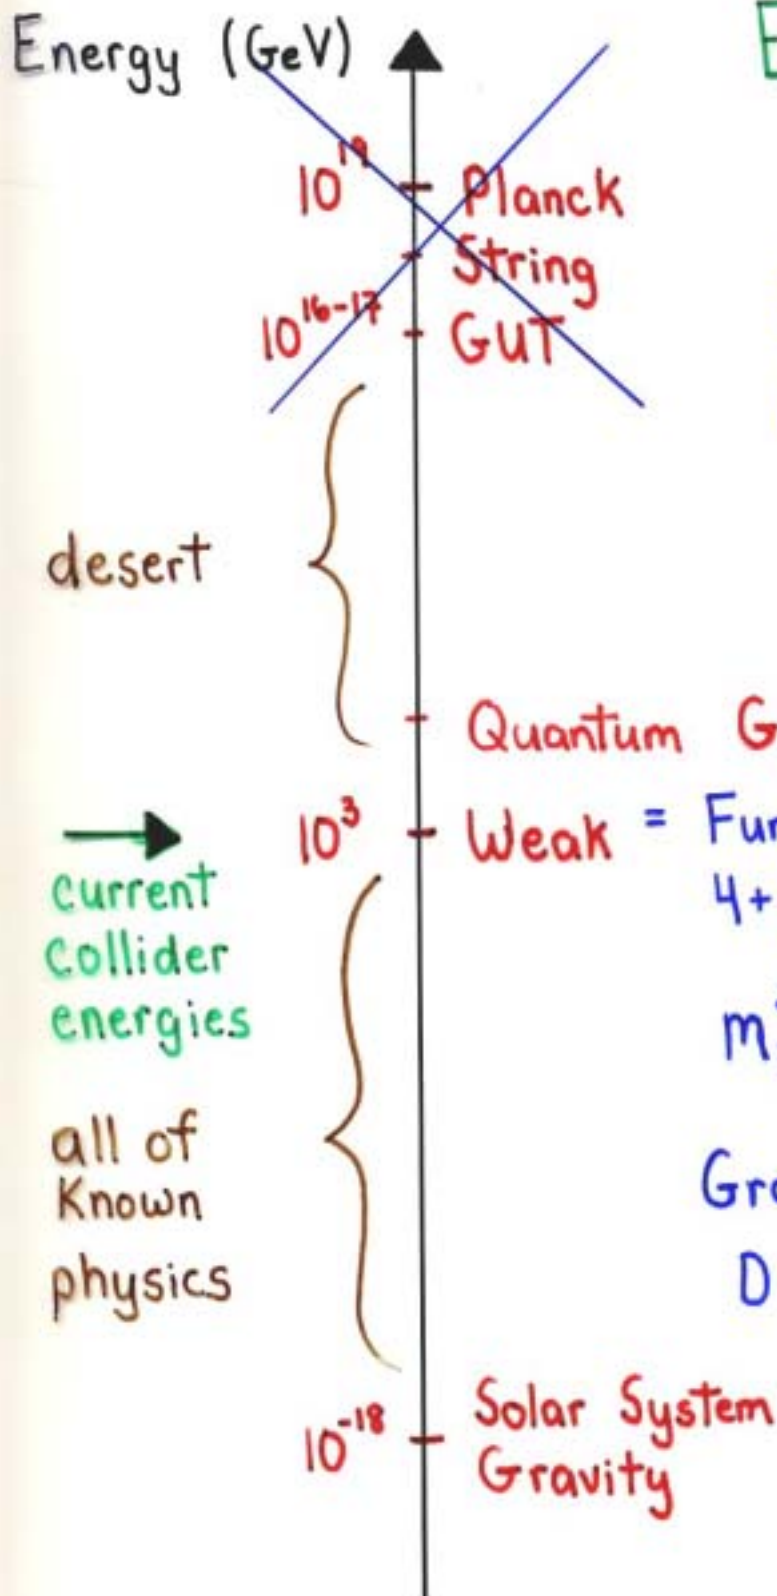 Energy (GeV)
10^19 Planck
String
10^16-17 GUT
desert
Quantum
10^3 Weak =
4+
current
collider
energies
m
all of
Known
physics
D
10^-18 Solar System
Gravity